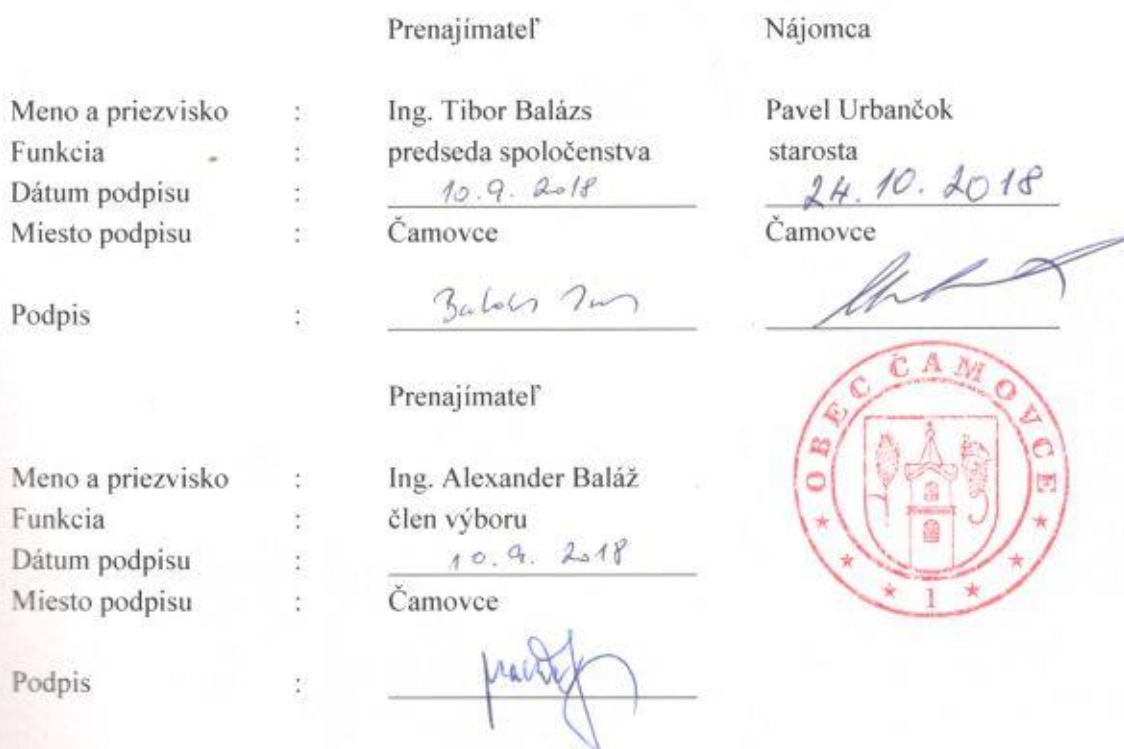 Prenajímateľ Nájomca
Meno a priezvisko : Ing. Tibor Balázs Pavel Urbančok
Funkcia : predseda spoločenstva starosta
Dátum podpisu : 10.9. 2018 24.10.2018
Miesto podpisu : Čamovce Čamovce
Podpis :
OBEC ČAMOVCE
1
Prenajímateľ
Meno a priezvisko : Ing. Alexander Baláž
Funkcia : člen výboru
Dátum podpisu : 10.9. 2018
Miesto podpisu : Čamovce
Podpis :